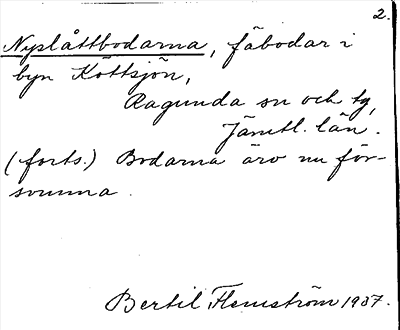 2.
Nyslåttbodarna, fäbodar i
byn Köttsjön,
Ragunda sn och tg,
Jämtl. län.
(forts.) Bodarna äro nu för-
svunna.
Bertil Flemström 1937.